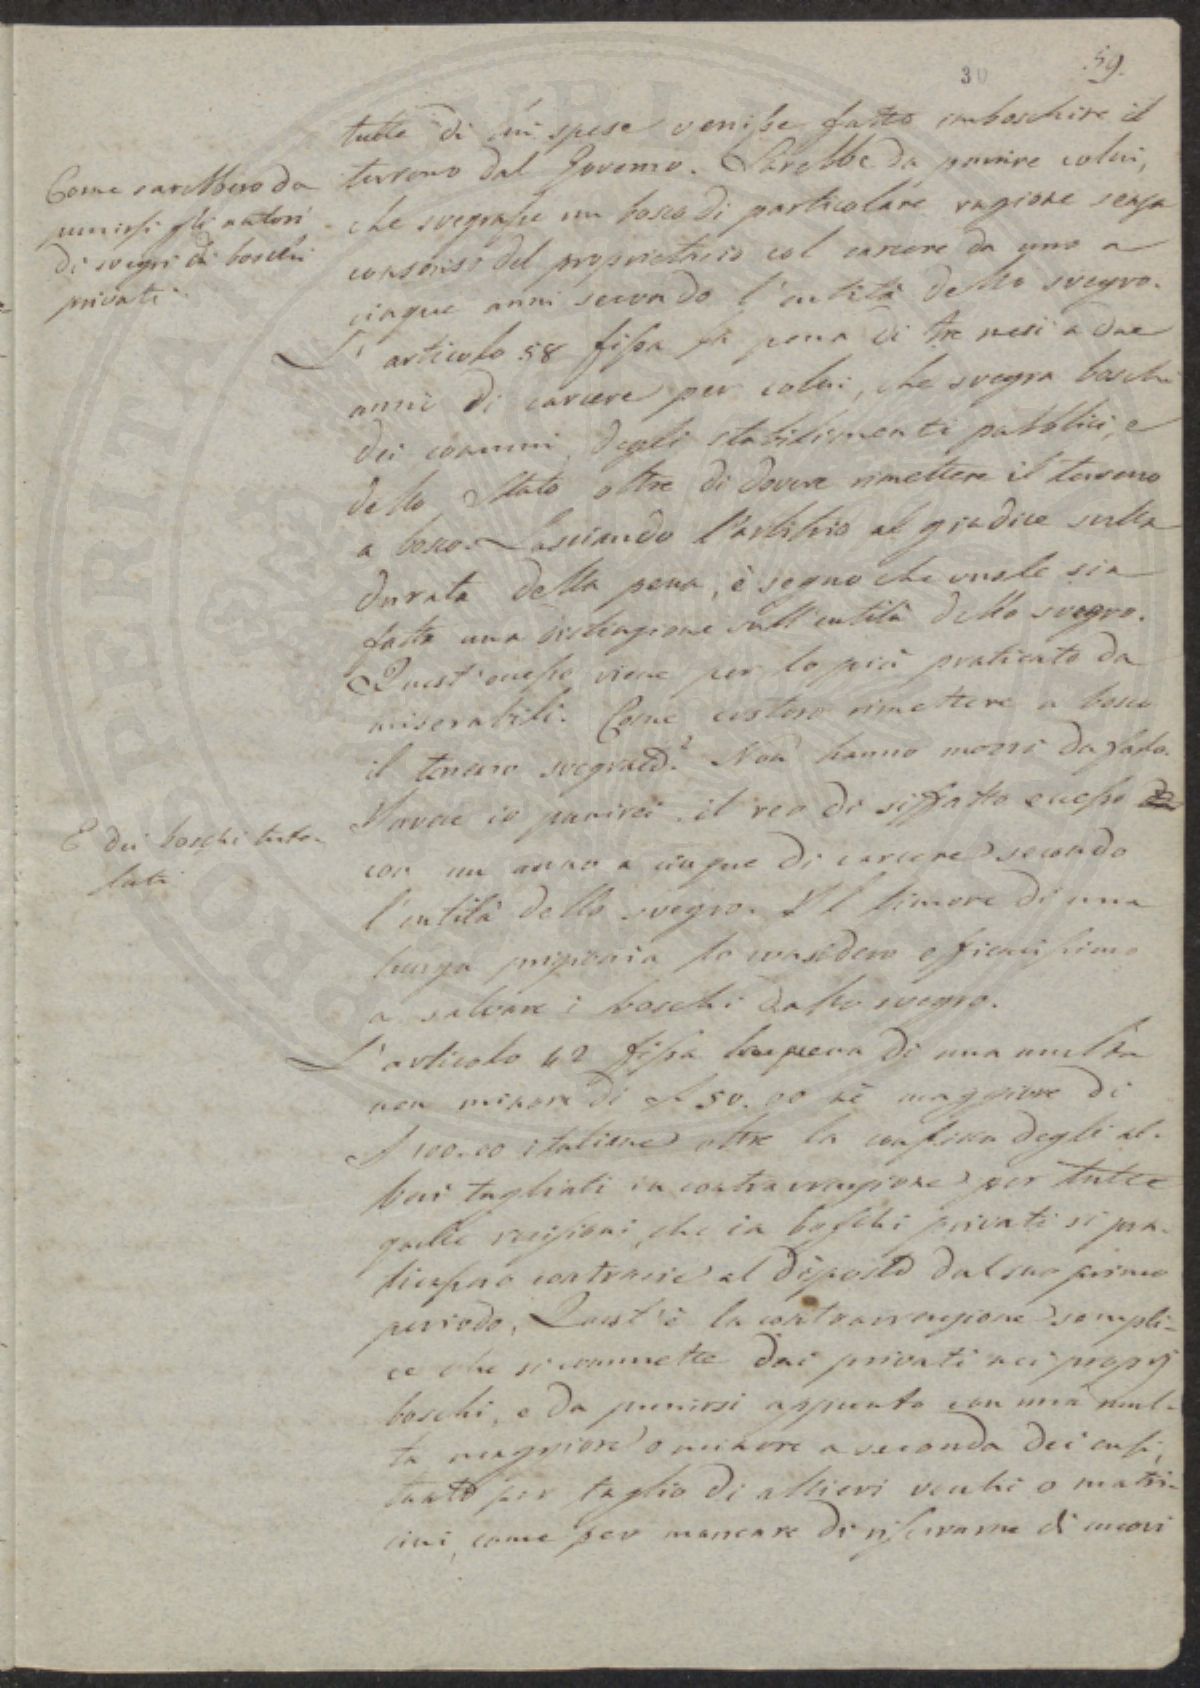 30
59.
tutte di cui spese venisse fatto imboschire il
terreno dal Governo. Sarebbe da punire colui,
che svegrasse un bosco di particolare ragione senza
consenso del proprietario col carcere da uno a
cinque anni secondo l'entità dello svegro.
Come sarebbero da
punirsi gli autori
di svegri di boschi
privati
L'articolo 58 fissa la pena di tre mesi a due
anni di carcere per colui, che svegra boschi
dei comuni, degli stabilimenti pubblici, e
dello Stato oltre di dovere rimettere il terreno
a bosco. Lasciando l'arbitrio al giudice sulla
durata della pena, è segno che vuole sia
fatta una distinzione sull'entità dello svegro.
Quest'eccesso viene per lo più praticato da
miserabili. Come costoro rimettere a bosco
il terreno svegrato? Non hanno mezzi da farlo.
Invece io punirei il reo di siffatto eccesso
con un anno a cinque di carcere secondo
l'entità dello svegro. Il timore di una
lunga prigionia lo considero efficacissimo
a salvare i boschi dallo svegro.
E dei boschi tute-
lati
L'articolo 42 fissa la pena di una multa
non minore di £ 50.00 nè maggiore di
£ 100.00 italiane oltre la confisca degli al-
beri tagliati in contravvenzione per tutte
quelle recisioni, che in boschi privati si pra-
ticassero contrarie al disposto dal suo primo
periodo. Quest'è la contravvenzione sempli-
ce che si commette dai privati nei proprj
boschi, e da punirsi appunto con una mul-
ta maggiore o minore a seconda dei casi,
tanto per taglio di allievi vecchi o matri-
cini, come per mancare di riservarne di nuovi